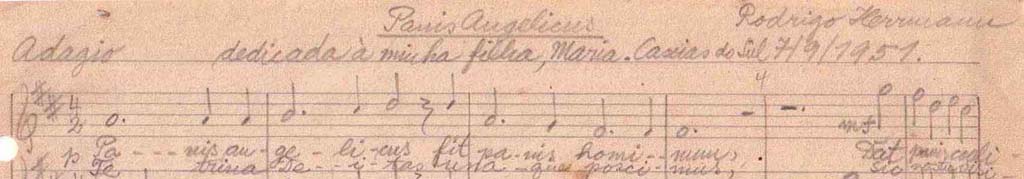 Panis Angelicus Rodrigo Herrmann
Adagio dedicada à minha filha, Maria. Caxias do Sul 7/9/1951.
4
4 2 mf
p Pa - - - nis an - ge - - li - cus fit pa - nis homi - - num, Dat panis coeli -
Te, trina De - - i - tas una - que posci - - mus,